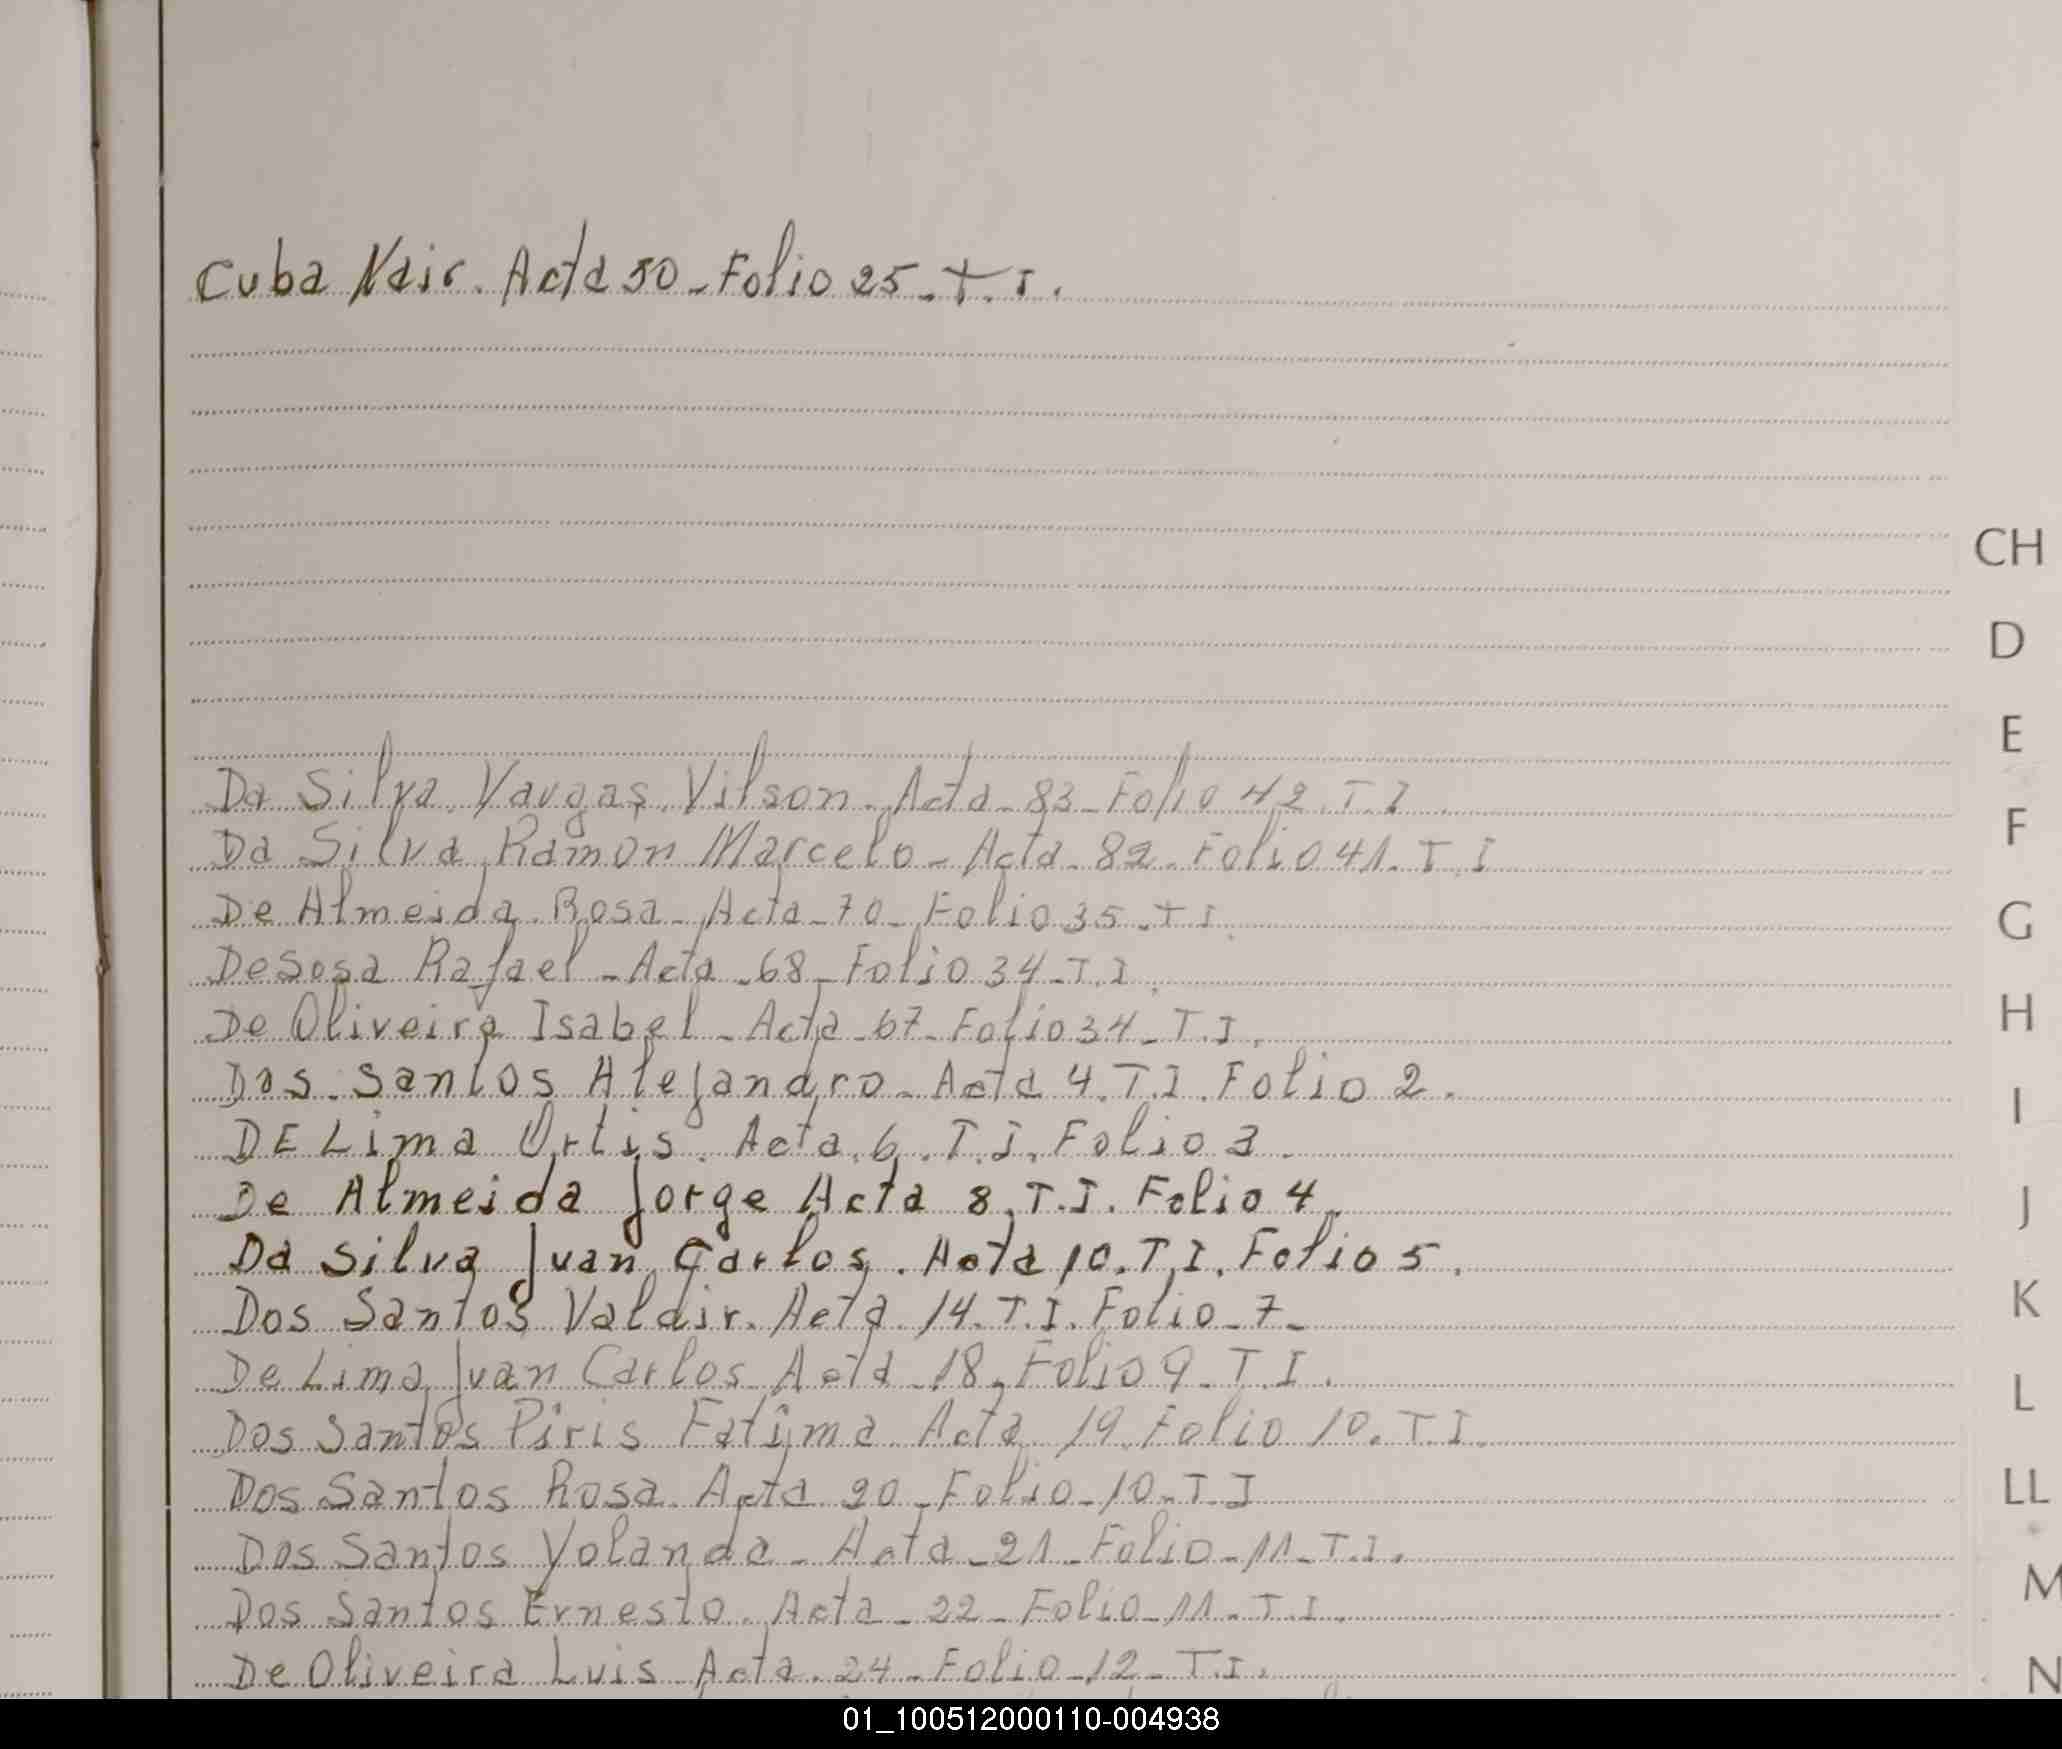 Cuba Nair. Acta 50_Folio 25_T.I.
CH
D
E
Da Silva Vargas Vilson. Acta_83_Folio 42.T.I
Da Silva Ramon Marcelo_Acta_82_Folio 41.T.I
F
De Almeida Rosa_Acta_70_Folio 35_T.I.
G
De Sosa Rafael_Acta_68_Folio 34_T.I.
De Oliveira Isabel_Acta_67_Folio 34_T.I.
H
Dos Santos Alejandro_Acta 4.T.I.Folio 2.
I
DE Lima Ortis. Acta.6.T.I.Folio 3.
De Almeida Jorge Acta 8.T.I.Folio 4.
J
Da Silva Juan Carlos. Acta 10.T.I.Folio 5.
Dos Santos Valdir. Acta 14.T.I.Folio_7_
K
De Lima Juan Carlos Acta 18_Folio 9_T.I.
L
Dos Santos Piris Fatima Acta 19 Folio 10.T.I.
Dos Santos Rosa Acta 20_Folio_10_T.I
LL
Dos Santos Yolanda_Acta_21_Folio_11_T.I.
M
Dos Santos Ernesto. Acta_22_Folio_11_T.I.
De Oliveira Luis Acta.24_Folio_12_T.I.
N
01_100512000110-004938